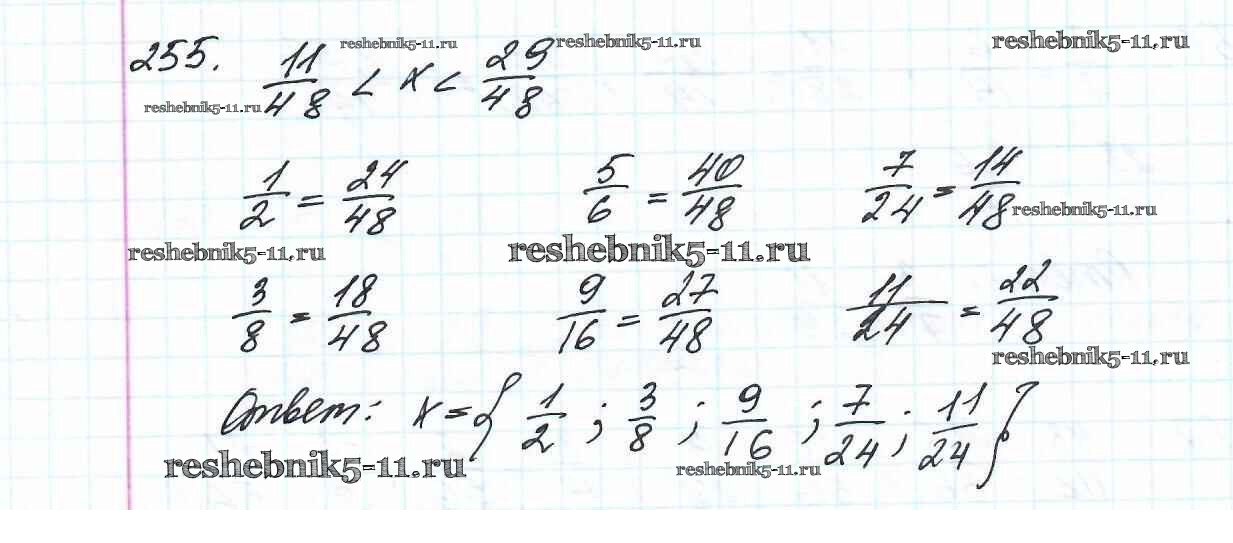 255. 11/48 < x < 29/48
reshebnik5-11.ru reshebnik5-11.ru reshebnik5-11.ru
reshebnik5-11.ru
1/2 = 24/48 5/6 = 40/48 7/24 = 14/48
reshebnik5-11.ru
reshebnik5-11.ru reshebnik5-11.ru
3/8 = 18/48 9/16 = 27/48 11/24 = 22/48
reshebnik5-11.ru
Ответ: x = { 1/2 ; 3/8 ; 9/16 ; 7/24 ; 11/24 }
reshebnik5-11.ru reshebnik5-11.ru